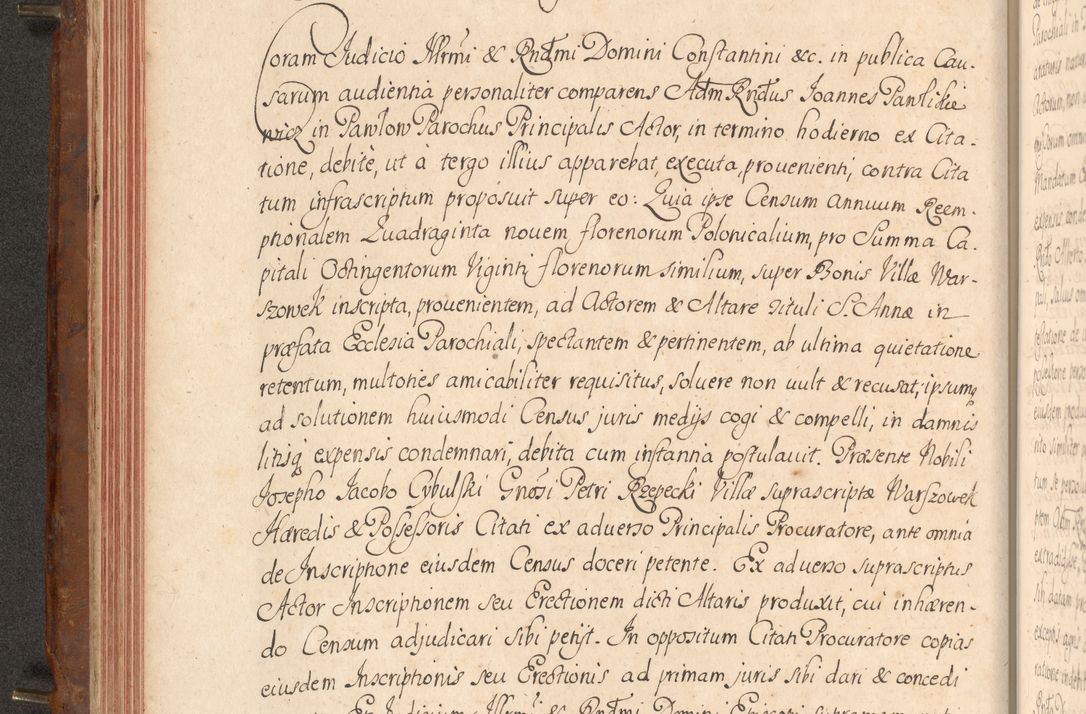 Coram Judicio Illrmi & Rndmi Domini Constantini &c. in publica Cau-
sarum audientia personaliter comparens Adm Rndus Joannes Pawlikie
wicz in Pawlow Parochus Principalis Actor, in termino hodierno ex Cita-
tione, debitè, ut à tergo illius apparebat, executa, prouenienti, contra Cita
tum infrascriptum proposuit super eo: Quia ipse Censum annuum Reem-
ptionalem Quadraginta nouem florenorum Polonicalium, pro Summa Ca-
pitali Octingentorum Viginti florenorum similium, super Bonis Villæ War-
szowek inscripta, prouenientem, ad Actorem & Altare tituli S. Annæ in
præfata Ecclesia Parochiali, spectantem & pertinentem, ab ultima quietatione
retentum, multoties amicabiliter requisitus, soluere non uult & recusat, ipsumq
ad solutionem huiusmodi Census juris medijs cogi & compelli, in damnis
litisq expensis condemnari, debita cum instantia postulauit. Præsente Nobili
Josepho Jacobo Cybulski Gnosi Petri Rzepecki Villæ suprascriptæ Warszowek
Hæredis & Possessoris Citati ex aduerso Principalis Procuratore, ante omnia
de Inscriptione eiusdem Census doceri petente. Ex aduerso suprascriptus
Actor Inscriptionem seu Erectionem dicti Altaris produxit, cui inhæren-
do Censum adjudicari sibi petijt. In oppositum Citati Procuratore copias
eiusdem Inscriptionis seu Erectionis ad primam juris sibi dari & concedi
Judicium Illrmi & Rndmi Domini